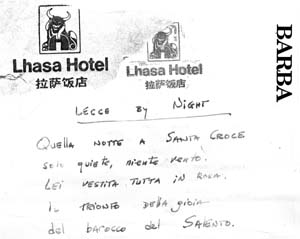 Lhasa Hotel
拉萨饭店
Lhasa Hotel
拉萨饭店
BARBA
LECCE by NIGHT
QUELLA NOTTE A SANTA CROCE
SOLO QUIETE, NIENTE VENTO.
LEI VESTITA TUTTA IN ROSA.
IL TRIONFO DELLA GIOIA
del BAROCCO del SALENTO.